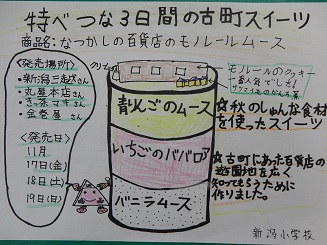 特べつな3日間の古町スイーツ
商品名:なつかしの百貨店のモノレールムース
〈発売場所〉
・新潟三越さん
・丸屋本店さん
・きっ茶マキさん
・金巻屋さん
〈発売日〉
11月
17日(金)
18日(土)
19日(日)
モノレールのクッキー
青りんごのムース
いちごのババロア
バニラムース
☆秋のしゅんな食材
を使ったスイーツ
☆古町にあった百貨店の
遊園地を広く
知ってもらうために
作りました。
新潟小学校